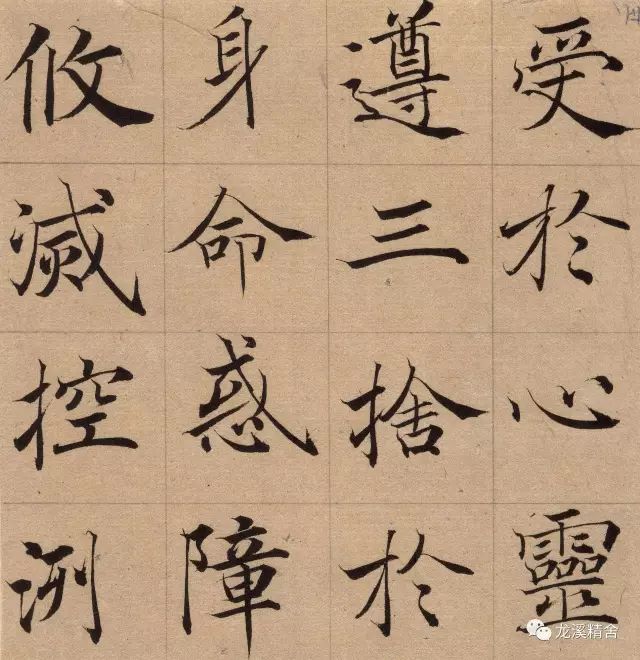 受於心靈
遵三捨於
身命惑障
攸滅控
龙溪精舍